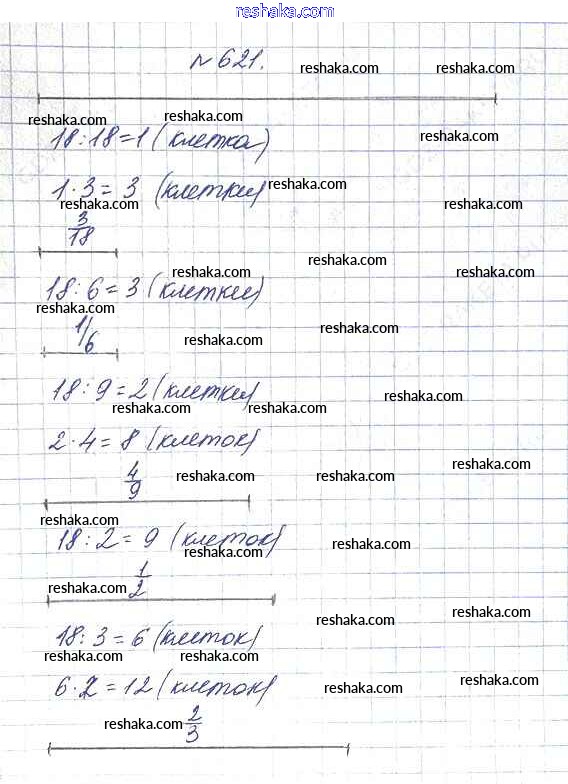 reshaka.com
№ 621. reshaka.com reshaka.com
reshaka.com reshaka.com
18:18=1 (клетка) reshaka.com
1·3=3 (клетки) reshaka.com
reshaka.com reshaka.com
3/18
reshaka.com
reshaka.com reshaka.com
18:6=3 (клетки)
reshaka.com
1/6 reshaka.com reshaka.com
18:9=2 (клетки) reshaka.com
reshaka.com reshaka.com
2·4=8 (клеток)
reshaka.com
4/9 reshaka.com reshaka.com reshaka.com
reshaka.com
18:2=9 (клеток) reshaka.com
reshaka.com
reshaka.com 1/2 reshaka.com
reshaka.com reshaka.com
18:3=6 (клеток)
reshaka.com reshaka.com
6·2=12 (клеток) reshaka.com reshaka.com
reshaka.com 2/3 reshaka.com